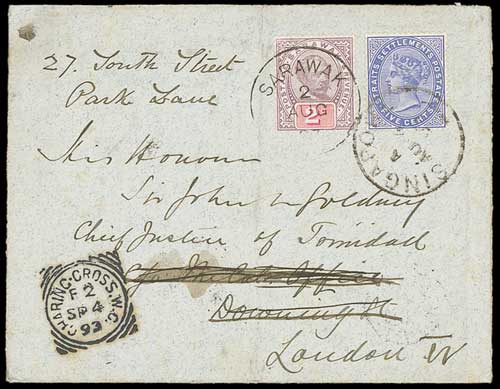 27. South Street
Park Lane
His Honour
Sir John Goldney
Chief Justice of Trinidad
c/o The Col. Office
Downing St
London W
SARAWAK
2
AUG
STRAITS SETTLEMENTS POSTAGE
FIVE CENTS
SINGAPO
AU
4
CHARING.CROSS.W.C.
F 2
SP 4
93